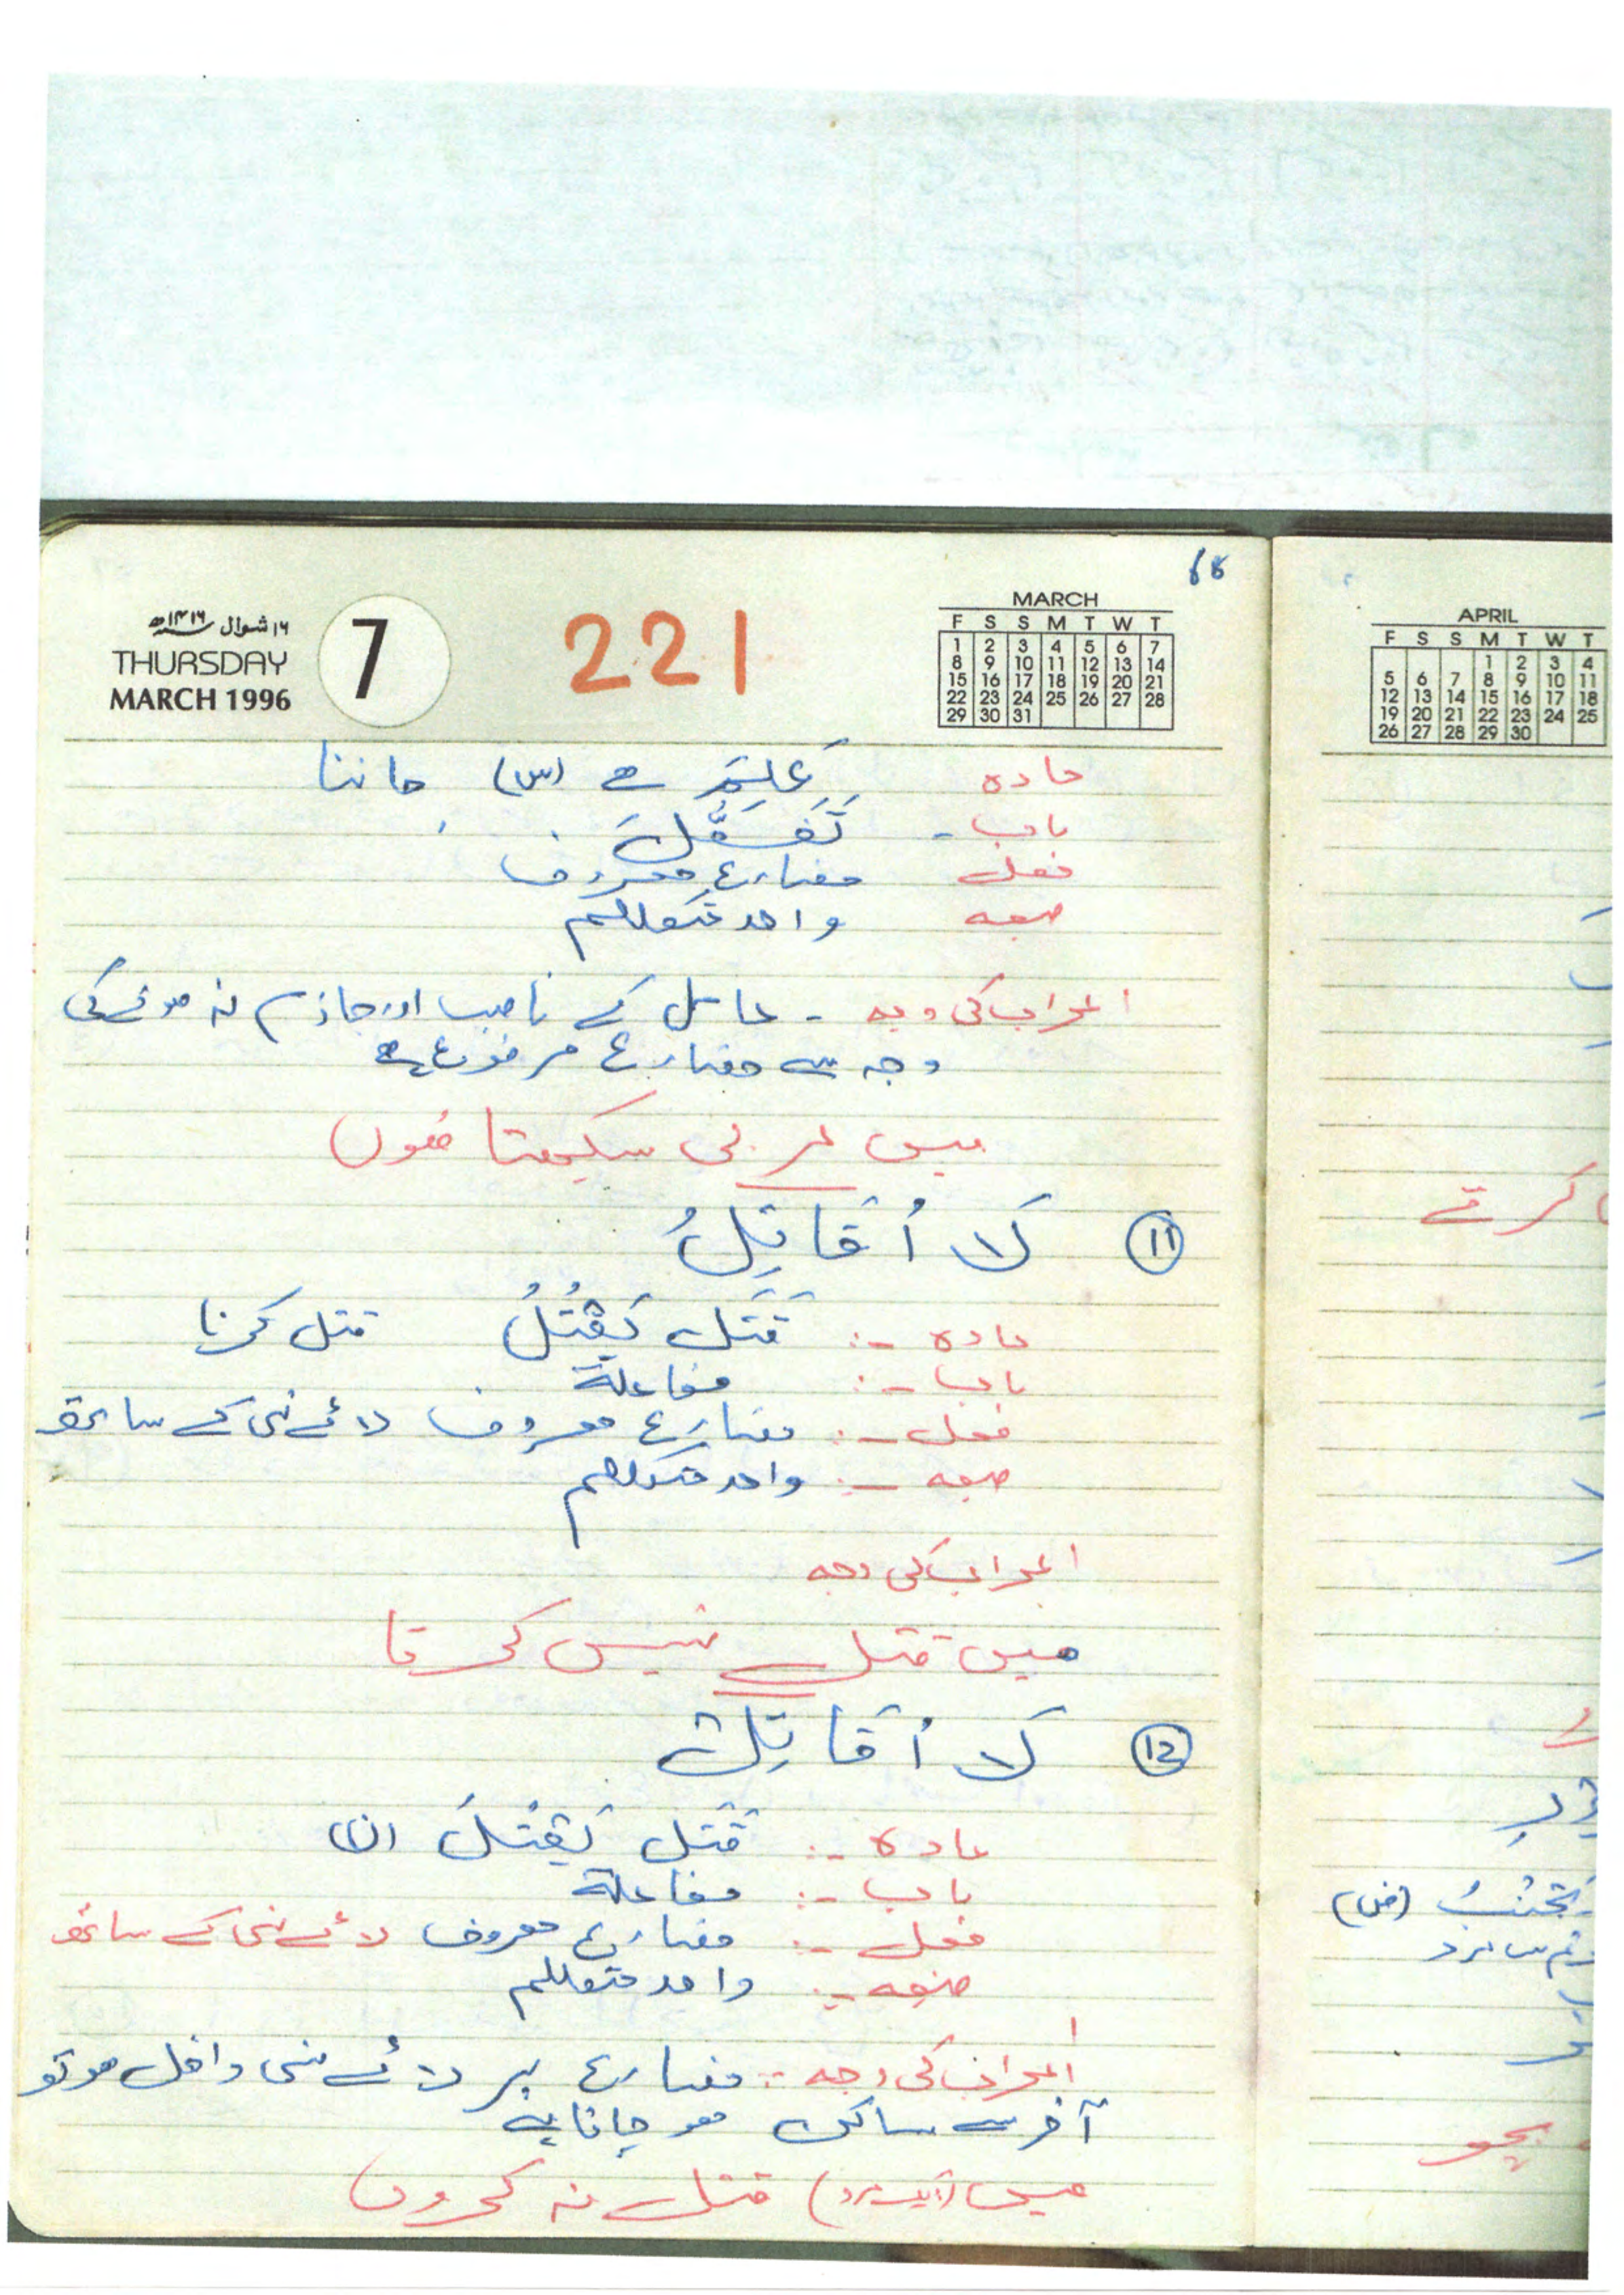 68
۱۶ شوال ۱۴۱۶ھ
THURSDAY
MARCH 1996
7
221
MARCH
F S S M T W T
1 2 3 4 5 6 7
8 9 10 11 12 13 14
15 16 17 18 19 20 21
22 23 24 25 26 27 28
29 30 31
مادہ عَلِمَ سے (س) جاننا
باب - تَفَعُّلَ
فعل مضارع معروف
صیغہ واحد متکلم
اعراب کی وجہ - عامل کے ناصب اور جازم نہ ہونے کی
وجہ سے مضارع مرفوع ہے
میں عربی سیکھتا ھوں
⑪ لَا اُقَاتِلُ
مادہ :- قَتَلَ يَقْتُلُ قتل کرنا
باب :- مفاعلة
فعل :- مضارع معروف لائے نہی کے ساتھ
صیغہ :- واحد متکلم
اعراب کی وجہ
میں قتل نہیں کرتا
⑫ لَا اُقَاتِلْ
مادہ :- قَتَلَ يَقْتُلُ (ن)
باب :- مفاعلة
فعل :- مضارع معروف لائے نہی کے ساتھ
صیغہ :- واحد متکلم
اعراب کی وجہ :- مضارع پر لائے نہی داخل ہو تو
آخر سے ساکن ہو جاتا ہے
میں (ایک مرد) قتل نہ کروں
APRIL
F S S M T W T
1 2 3 4
5 6 7 8 9 10 11
12 13 14 15 16 17 18
19 20 21 22 23 24 25
26 27 28 29 30
کرتے
(ض)
بچو